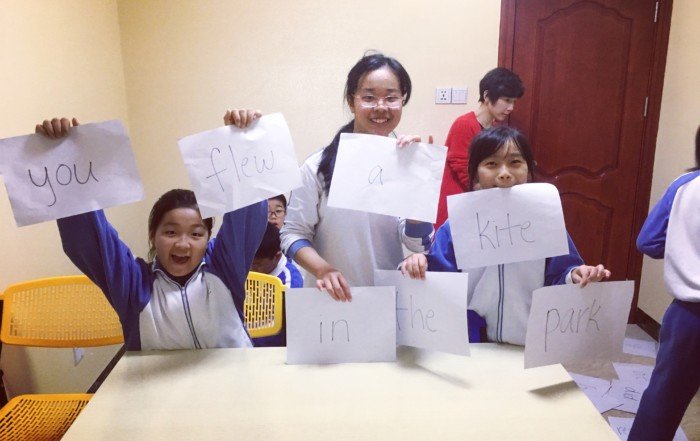 you flew a kite
in the park